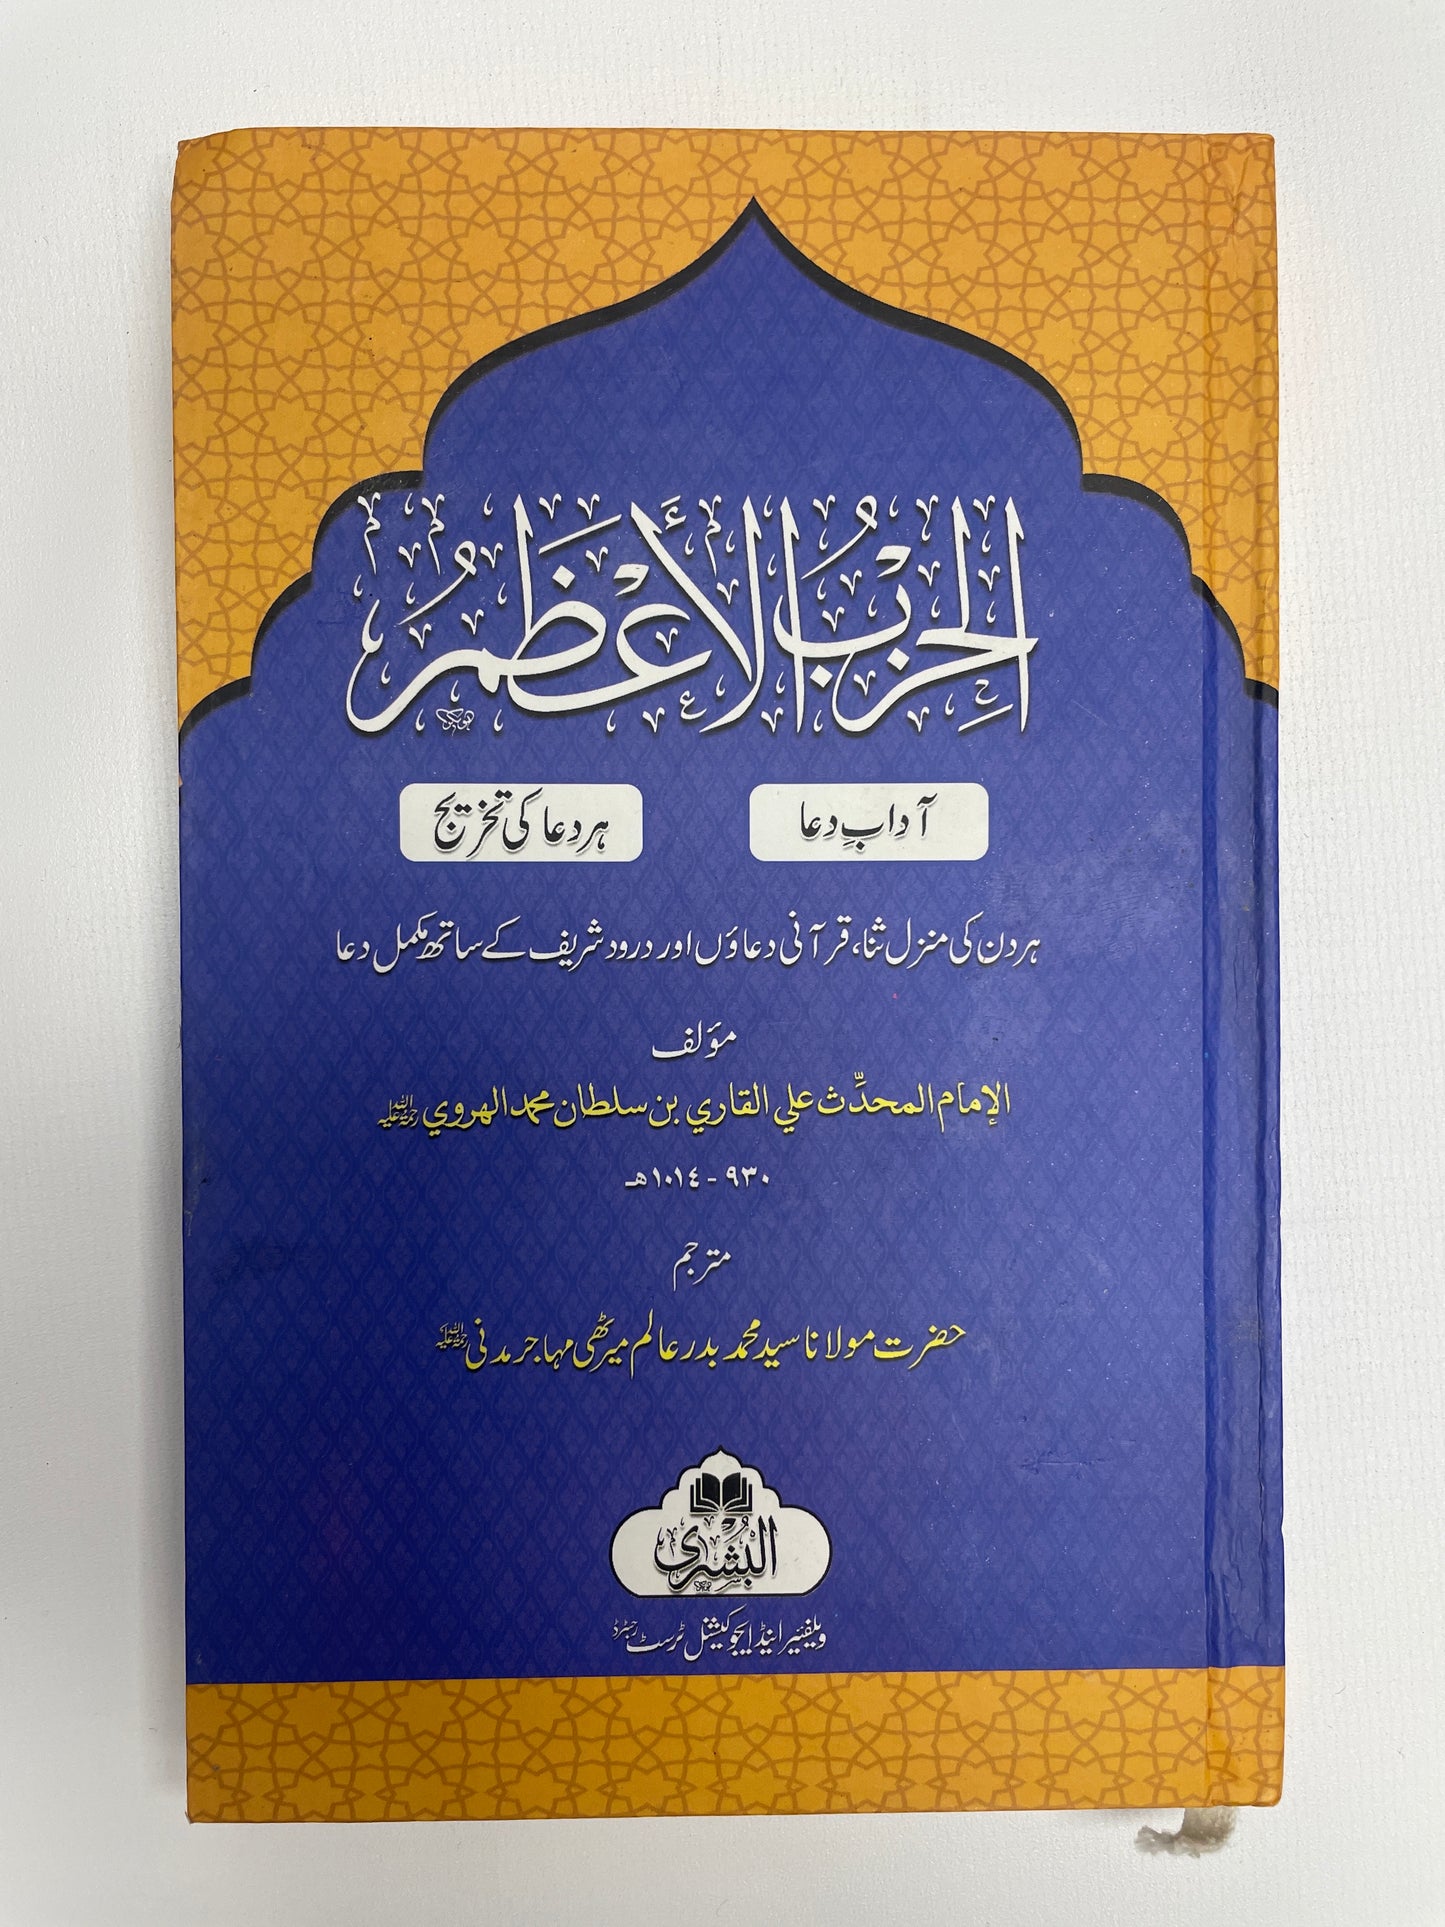 الحِزْبُ الأَعْظَمُ
آدابِ دعا
ہر دعا کی تخریج
ہر دن کی منزل ثنا، قرآنی دعاؤں اور درود شریف کے ساتھ مکمل دعا
مؤلف
الإمام المحدِّث علي القاري بن سلطان محمد الهروي رحمۃ اللہ علیہ
٩٣٠ - ١٠١٤هـ
مترجم
حضرت مولانا سید محمد بدر عالم میرٹھی مہاجر مدنی رحمۃ اللہ علیہ
البُشْرٰی
ویلفئیر اینڈ ایجوکیشنل ٹرسٹ رجسٹرڈ